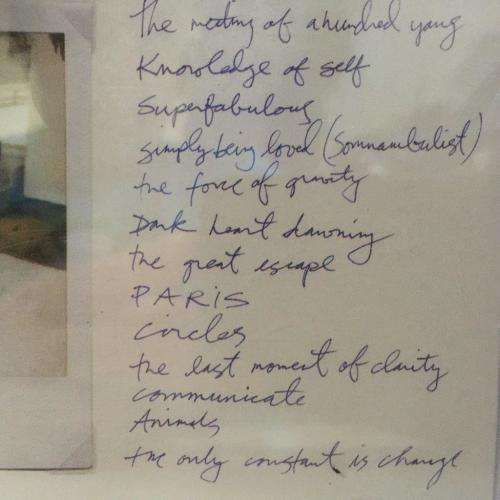 The meeting of a hundred yang
Knowledge of self
Superfabulous
simply being loved (somnambulist)
the force of gravity
Dark heart dawning
the great escape
PARIS
circles
the last moment of clarity
communicate
Animals
the only constant is change